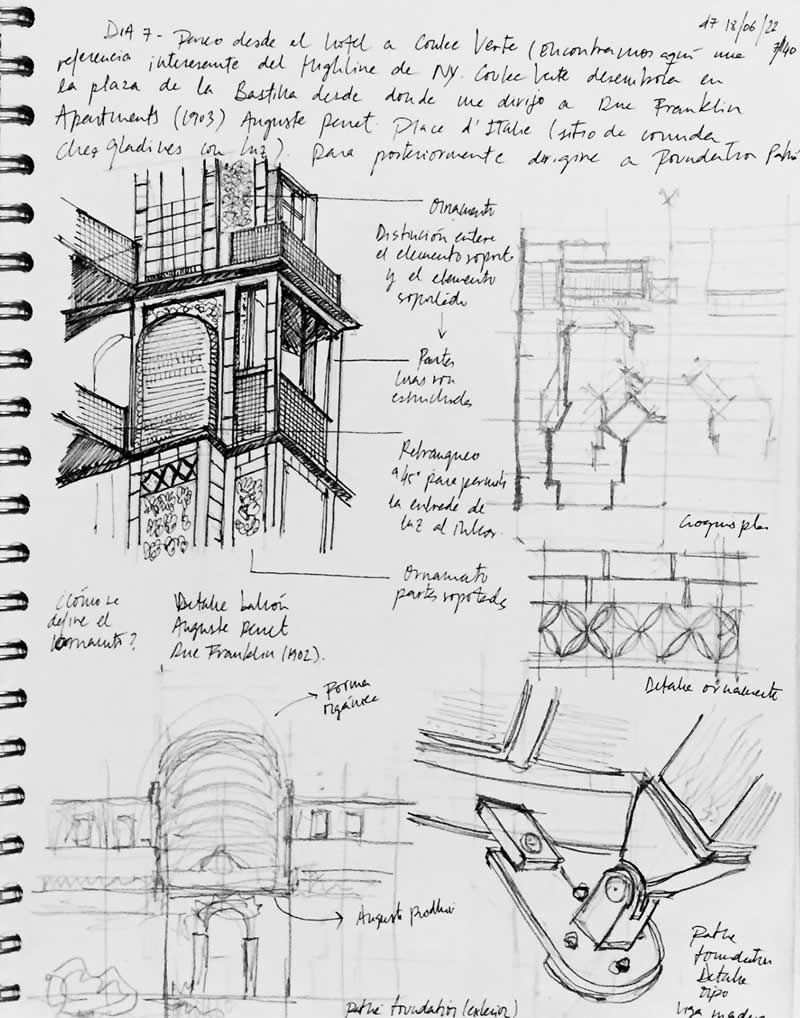 d7 18/06/22
DIA 7 - Paseo desde el hotel a Coulee Verte (encontramos aquí una
referencia interesante del Highline de NY. Coulee Verte desemboca en
la plaza de la Bastilla desde donde me dirijo a Rue Franklin
Apartments (1903) Auguste Perret. Place d'Italie (sitio de comida
Chez Gladines con luz). Para posteriormente dirigirme a Foundation Pathé
Ornamento
Distinción entre
el elemento soporte
y el elemento
soportado
Partes
lisas son
estructurales
Retranqueo
a 45° para permitir
la entrada de
luz al interior.
Croquis planta
Ornamento
partes soportadas
¿Cómo se
define el
ornamento?
Detalle balcón
Auguste Perret
Rue Franklin (1902).
Detalle ornamento
Forma
orgánica
Auguste Rodin
Pathé foundation (exterior)
Pathé
foundation
Detalle
tipo
viga madera